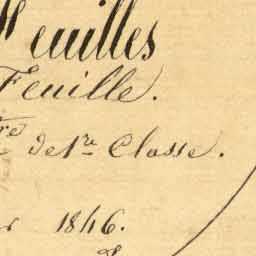 Feuilles
Feuille.
re de 1re Classe.
1846.